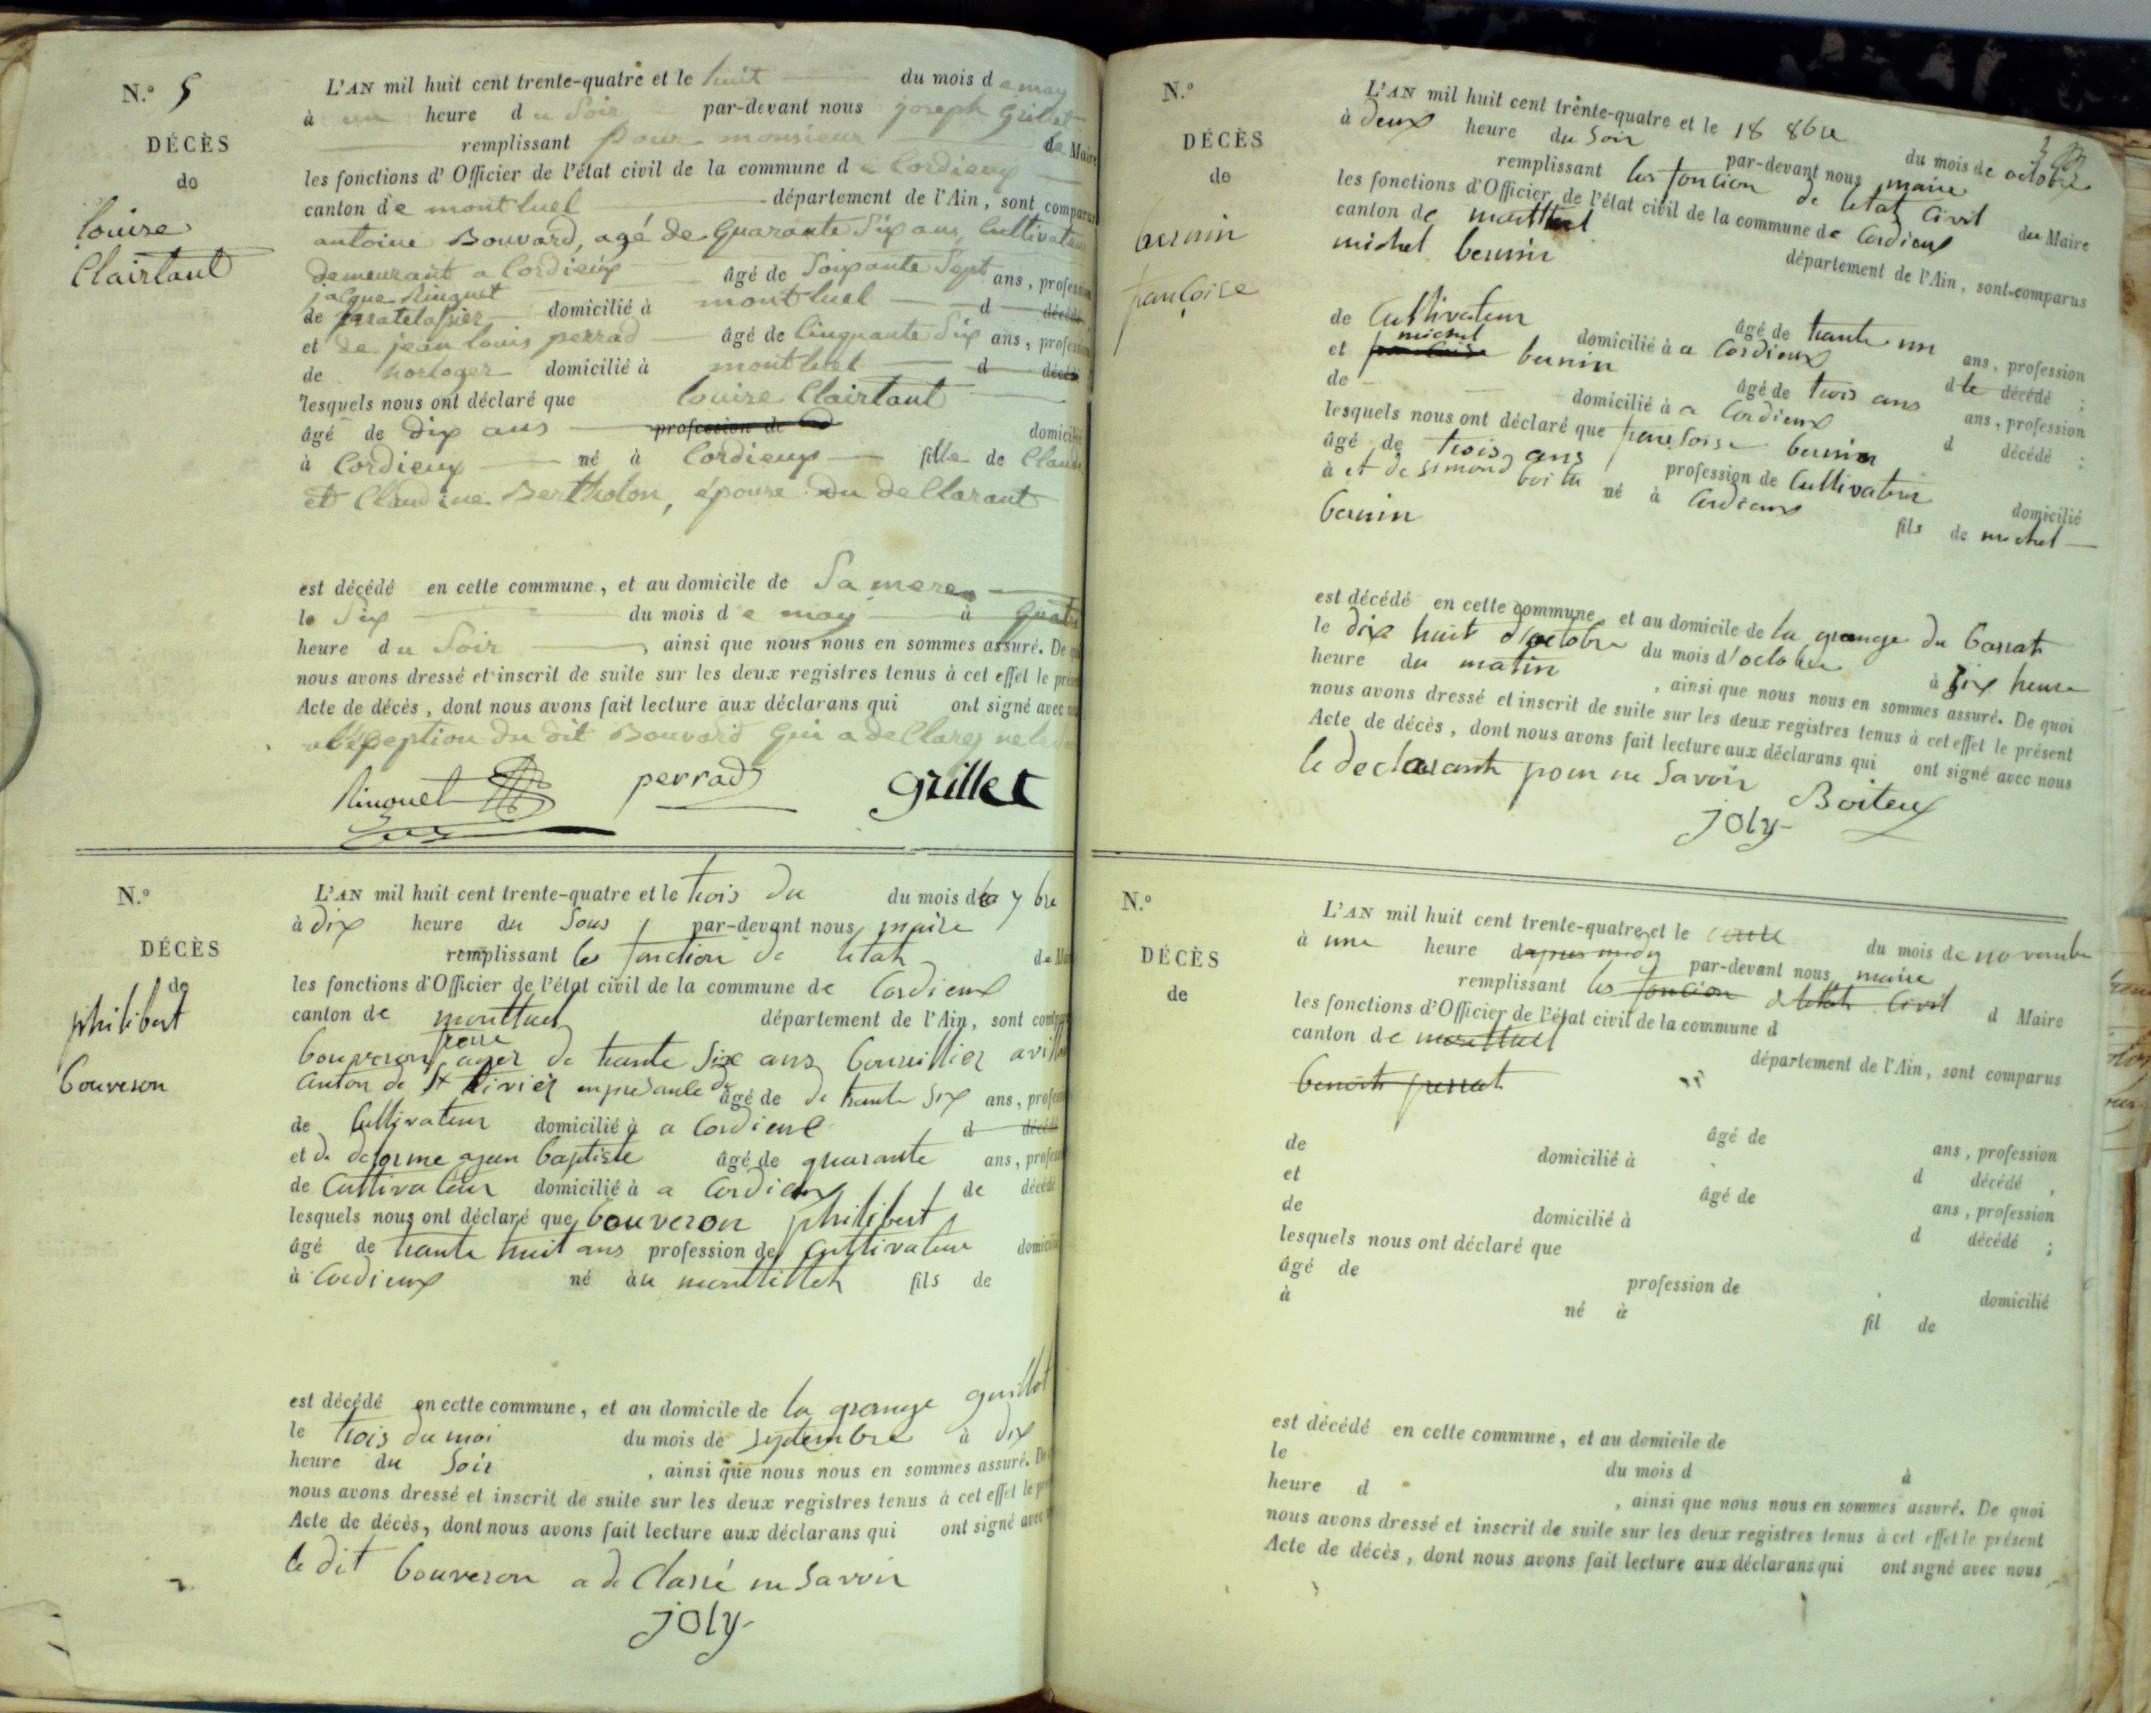 N.º 5
DÉCÈS
de
louise
Clairtant
L'AN mil huit cent trente-quatre et le huit du mois de may
à un heure du Soir par-devant nous joseph Grillet
remplissant pour monsieur le Maire
les fonctions d'Officier de l'état civil de la commune de Cordieux
canton de montluel département de l'Ain, sont comparus
antoine Bouvard, agé de Quarante Six ans, Cultivateur
demeurant a Cordieux âgé de Soixante Sept ans, profession
jacque Rinquet
de domicilié à montluel d décédé
et de jean louis perrad âgé de Cinquante Six ans, profession
de horloger domicilié à montluel d décédé
lesquels nous ont déclaré que louise Clairtant
âgé de dix ans profession de domicilié
à Cordieux né à Cordieux fille de Claude
et Claudine Bertholon, épouse du declarant
est décédé en cette commune, et au domicile de Sa mere
le Six du mois de may à quatre
heure du Soir, ainsi que nous nous en sommes assuré. De
nous avons dressé et inscrit de suite sur les deux registres tenus à cet effet le
Acte de décès, dont nous avons fait lecture aux déclarans qui ont signé avec
du dit Bouvard qui a declarez
Rinquet perrad Grillet
N.º
DÉCÈS
de
philibert
bouveron
L'AN mil huit cent trente-quatre et le trois du du mois de 7 bre
à dix heure du par-devant nous maire
remplissant les fonction de letat
les fonctions d'Officier de l'état civil de la commune de Cordieux
canton de montluel département de l'Ain, sont
bouveron agé de trante Six ans
canton de St âgé de de trante Six ans,
de Cultivateur domicilié à a Cordieux d décédé
et de baptiste âgé de quarante ans,
de Cultivateur domicilié à a Cordieux de décédé
lesquels nous ont déclaré que bouveron philibert
âgé de trante huit ans profession de Cultivateur domicilié
à Cordieux né àu montellier fils de
est décédé en cette commune, et au domicile de la grange guillot
le trois du moi du mois de Septembre à dix
heure du Soir, ainsi que nous nous en sommes assuré. De
nous avons dressé et inscrit de suite sur les deux registres tenus à cet effet le
Acte de décès, dont nous avons fait lecture aux déclarans qui ont signé avec
le dit bouveron a de Claré ne Savoir
joly
N.º
DÉCÈS
de
bernin
françoise
L'AN mil huit cent trente-quatre et le 18 8bre du mois de octobre
à deux heure du Soir par-devant nous maire
remplissant les foncion de letat Civil du Maire
les fonctions d'Officier de l'état civil de la commune de Cordieux
canton de montluel département de l'Ain, sont comparus
michel bernin
âgé de trante un ans, profession
de Cultivateur domicilié à a Cordieux d le décédé;
michel
et bernin âgé de trois ans ans, profession
de domicilié à a Cordieux d décédé;
lesquels nous ont déclaré que bernin
âgé de trois ans profession de Cultivateur domicilié
à et de né à Cordieux fils de michel
bernin
est décédé en cette commune, et au domicile de la grange du
le dix huit d'octobre du mois d'octobre à Six heure
heure du matin, ainsi que nous nous en sommes assuré. De quoi
nous avons dressé et inscrit de suite sur les deux registres tenus à cet effet le présent
Acte de décès, dont nous avons fait lecture aux déclarans qui ont signé avec nous
le declarant pour ne Savoir
Boiteux
joly
N.º
DÉCÈS
de
L'AN mil huit cent trente-quatre et le du mois de novembre
à une heure par-devant nous maire
remplissant les foncion Civil d Maire
les fonctions d'Officier de l'état civil de la commune d
canton de montluel département de l'Ain, sont comparus
benoit
âgé de ans, profession
de domicilié à d décédé,
et âgé de ans, profession
de domicilié à d décédé;
lesquels nous ont déclaré que
âgé de profession de domicilié
à né à fil de
est décédé en cette commune, et au domicile de
le du mois d à
heure d, ainsi que nous nous en sommes assuré. De quoi
nous avons dressé et inscrit de suite sur les deux registres tenus à cet effet le présent
Acte de décès, dont nous avons fait lecture aux déclarans qui ont signé avec nous